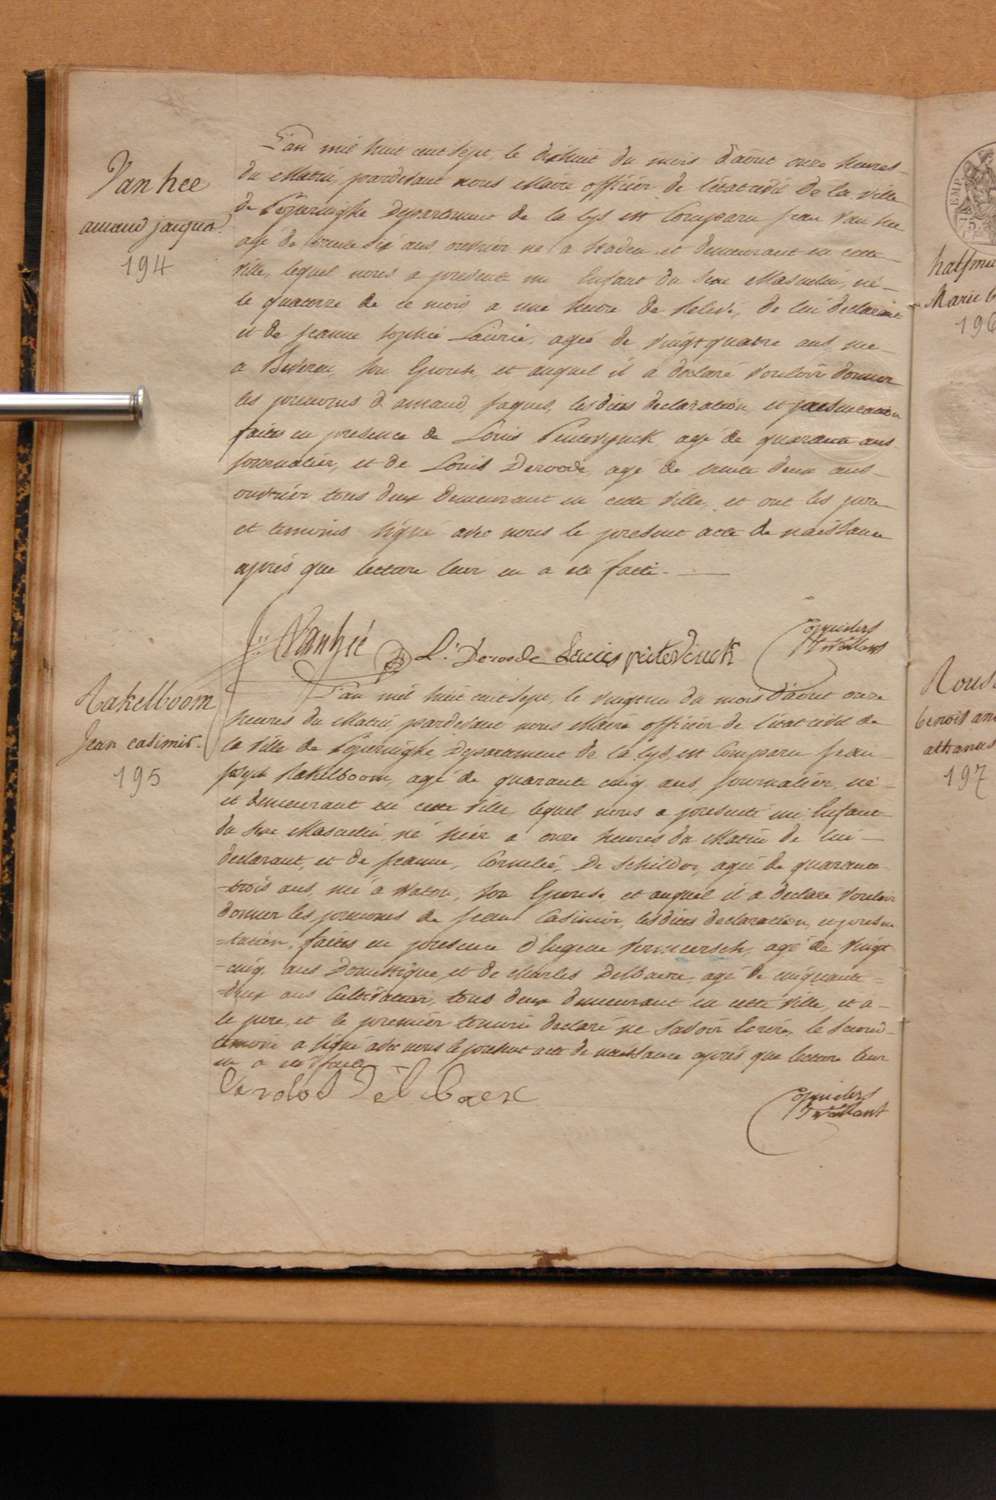 Van hee
amand jacques
194
L'an mil huit cent sept, le dixhuit du mois d'août onze heures
du Matin, pardevant nous Maire officier de l'état civil de la Ville
de Poperinghe Département de la Lys est Comparu jean Van hee
age de trente six ans ouvrier né a et demeurant en cette
Ville, lequel nous a presenté un Enfant du Sexe Masculin, né
le quatorze de ce mois a une heure de Relevé, de lui declarant
et de jeanne Sophie Laurie, agée de Vingt quatre ans née
a Son Epouse, et auquel il a declare Vouloir donner
les prenoms d'amand jaques, les dites declaration et presentation
faites en presence de Louis Peuterynck agé de quarante ans
journalier, et de Louis Deroode agé de trente deux ans
ouvrier tous deux demeurant en cette Ville, et ont les pere
et temoins signé avec nous le present acte de naissance
après que lecture leur en a été faite.
Vanhié L. Deroode Louis
Rakelboom
Jean casimir
195
L'an mil huit cent sept, le vingt un du mois d'août onze
heures du Matin pardevant nous Maire officier de l'état civil de
la Ville de Poperinghe Département de la Lys, est Comparu jean
joseph Rakelboom, agé de quarante cinq ans, journalier, né
et demeurant en cette Ville lequel nous a presenté un Enfant
du Sexe Masculin, né hier a onze heures du Matin de lui
declarant, et de jeanne, Cornelie, De Schilder, agée de quarante
trois ans, née a Watou, Son Epouse et auquel il a declare Vouloir
donner les prenoms de jean Casimir, les dites declaration, et presen
=tation, faites en presence d'Eugene Vermeersch, agé de Vingt
=cinq ans Domestique, et de Charles Delbaere, agé de cinquante=
=deux ans Cultivateur, tous deux demeurant en cette Ville, et a
le pere, et le premier temoin declaré ne Savoir Ecrire, le Second
temoin a signé avec nous le present acte de naissance après que lecture leur
en a été faite
Carolus Delbaere
halfmae
Marie
196
Rous
benoit
197